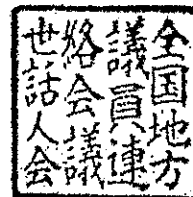 全国地方
議員連
絡会議
世話人会